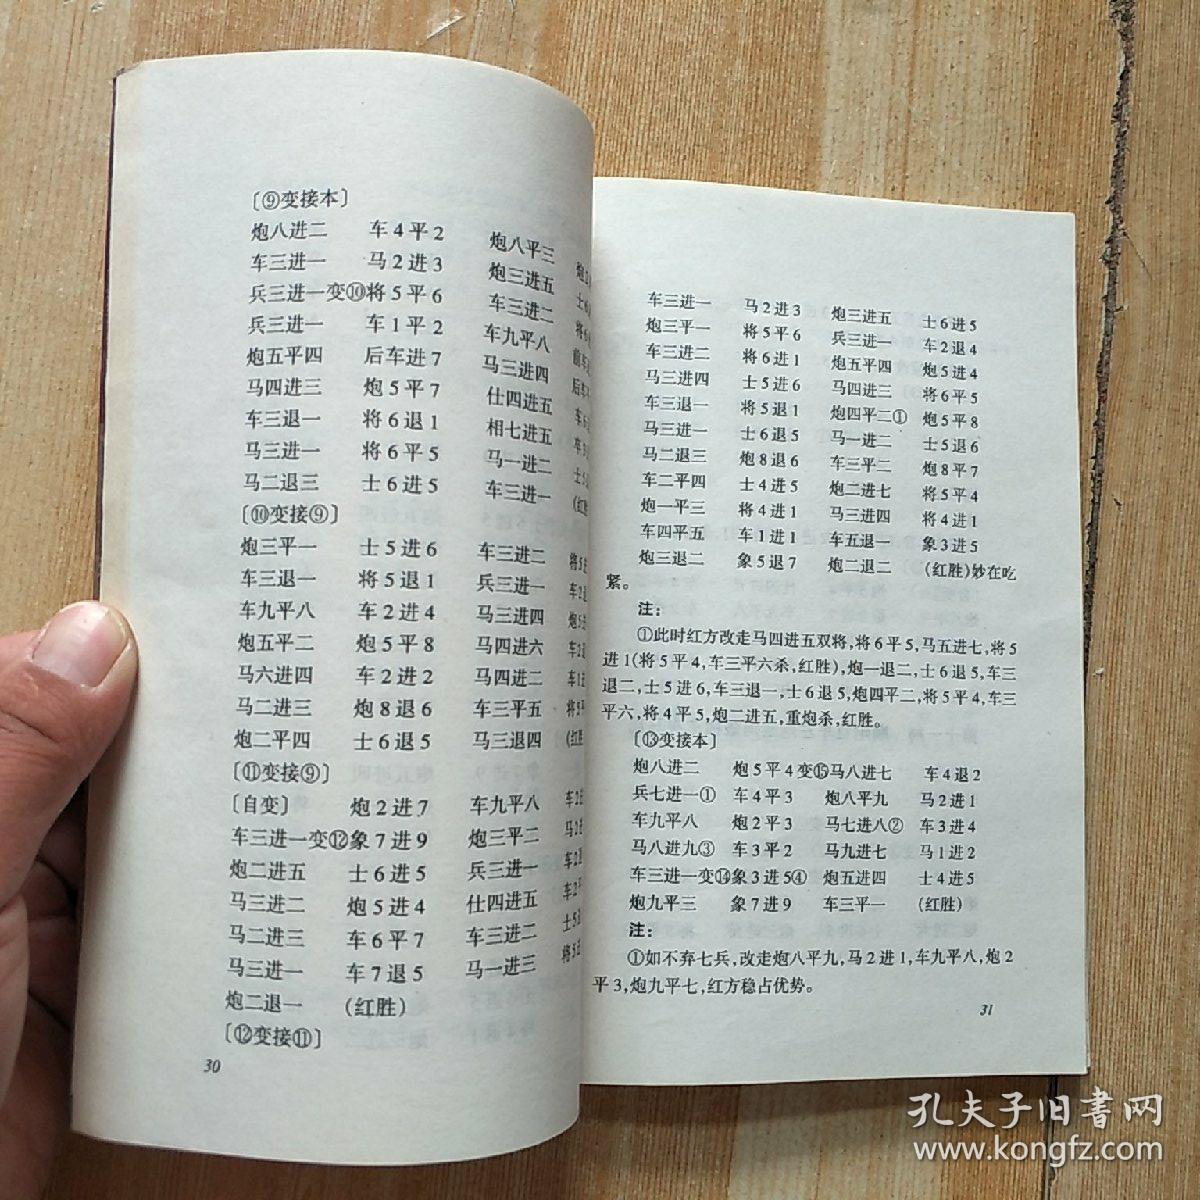 〔⑨变接本〕
炮八进二 车4平2 炮八平三
车三进一 马2进3 炮三进五
兵三进一变⑩将5平6 车三进二
兵三进一 车1平2 车九平八
炮五平四 后车进7 马三进四
马四进三 炮5平7 仕四进五
车三退一 将6退1 相七进五
马三进一 将6平5 马一进二
马二退三 士6进5 车三进一 (红胜
〔⑩变接⑨〕
炮三平一 士5进6 车三进二
车三退一 将5退1 兵三进一
车九平八 车2进4 马三进四
炮五平二 炮5平8 马四进六
马六进四 车2进2 马四进二
马二进三 炮8退6 车三平五
炮二平四 士6退5 马三退四 (红胜
〔⑪变接⑨〕
〔自变〕 炮2进7 车九平八
车三进一变⑫象7进9 炮三平二
炮二进五 士6进5 兵三进一
马三进二 炮5进4 仕四进五
马二进三 车6平7 车三进二
马三进一 车7退5 马一进三
炮二退一 (红胜)
〔⑫变接⑪〕
30
车三进一 马2进3 炮三进五 士6进5
炮三平一 将5平6 兵三进一 车2退4
车三进二 将6进1 炮五平四 炮5进4
马三进四 士5进6 马四进三 将6平5
车三退一 将5退1 炮四平二① 炮5平8
马三进一 士6退5 马一进二 士5退6
马二退三 炮8退6 车三平二 炮8平7
车二平四 士4进5 炮二进七 将5平4
炮一平三 将4进1 马三进四 将4进1
车四平五 车1进1 车五退一 象3进5
炮三退二 象5退7 炮二退二 (红胜)妙在吃
紧。
注:
①此时红方改走马四进五双将,将6平5,马五进七,将5
进1(将5平4,车三平六杀,红胜),炮一退二,士6退5,车三
退二,士5进6,车三退一,士6退5,炮四平二,将5平4,车三
平六,将4平5,炮二进五,重炮杀,红胜。
〔⑬变接本〕
炮八进二 炮5平4变⑮马八进七 车4退2
兵七进一① 车4平3 炮八平九 马2进1
车九平八 炮2平3 马七进八② 车3进4
马八进九③ 车3平2 马九进七 马1进2
车三进一变⑭象3进5④ 炮五进四 士4进5
炮九平三 象7进9 车三平一 (红胜)
注:
①如不弃七兵,改走炮八平九,马2进1,车九平八,炮2
平3,炮九平七,红方稳占优势。
31
孔夫子旧书网
www.kongfz.com